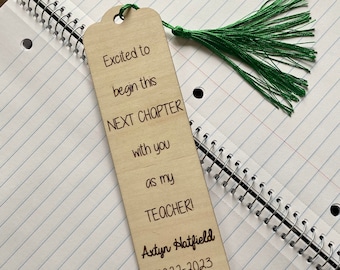 Excited to
begin this
NEXT CHAPTER
with you
as my
TEACHER!
Axtyn Hatfield
2022-2023